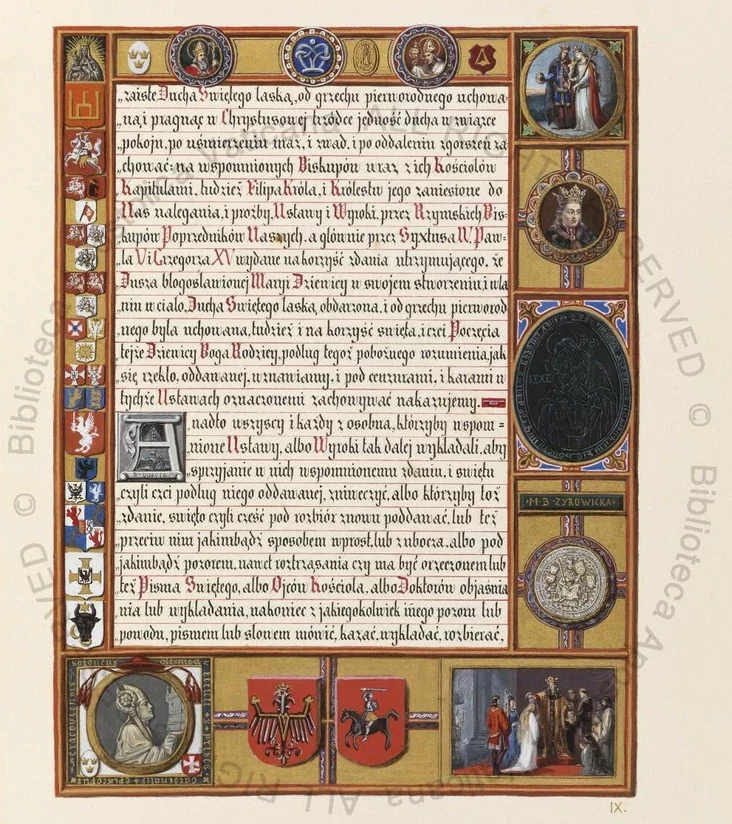 „zaiste Ducha Swiętego łaską, od grzechu pierworodnego uchowa-
„na, i pragnąc w Chrystusowej trzodce jedność ducha w związce
„pokoju, po uśmierzeniu uraz, i zwad, i po oddaleniu zgorszeń za-
„chować: na wspomnionych Biskupów wraz z ich Kościołów
„Kapitułami, tudzież Filipa Króla, i Królestw jego zaniesione do
„Nas nalegania, i prośby, Ustawy i Wyroki, przez Rzymskich Bis-
„kupów Poprzedników Naszych, a głównie przez Syxtusa IV. Paw-
„ła V i Grzegorza XV wydane na korzyść zdania utrzymującego, że
„Dusza błogosławionej Maryi Dziewicy w swojem stworzeniu, i wla-
„niu w ciało, Ducha Swiętego łaską, obdarzona, i od grzechu pierworod
„nego była uchowana, tudzież i na korzyść święta, i czci Poczęcia
„tejże Dziewicy Boga Rodzicy, podług tegoż pobożnego rozumienia, jak
„się rzekło, oddawanej, wznawiamy, i pod cenzurami, i karami w
„tychże Ustawach oznaczonemi zachowywać nakazujemy.
A nadto wszyscy i każdy z osobna, którzyby wspom=
„nione Ustawy, albo Wyroki tak dalej wykładali, aby
„sprzyjanie w nich wspomnionemu zdaniu, i świętu
„czyli czci podług niego oddawanej, zniweczyć, albo którzyby toż
„zdanie, święto czyli cześć pod rozbiór znowu poddawać, lub też
„przeciw nim jakimbądź sposobem wprost, lub zubocza, albo pod
„jakimbądź pozorem, nawet roztrząsania czy ma być orzeczonem lub
„też Pisma Swiętego, albo Ojców Kościoła, albo Doktorów objaśnia
„nia lub wykładania, nakoniec z jakiegokolwiek innego pozoru lub
„powodu, pismem lub słowem mówić, kazać, wykładać, rozbierać,
M·B·ŻYROWICKA
IX.
© Biblioteca
ALL RIGHTS RESERVED